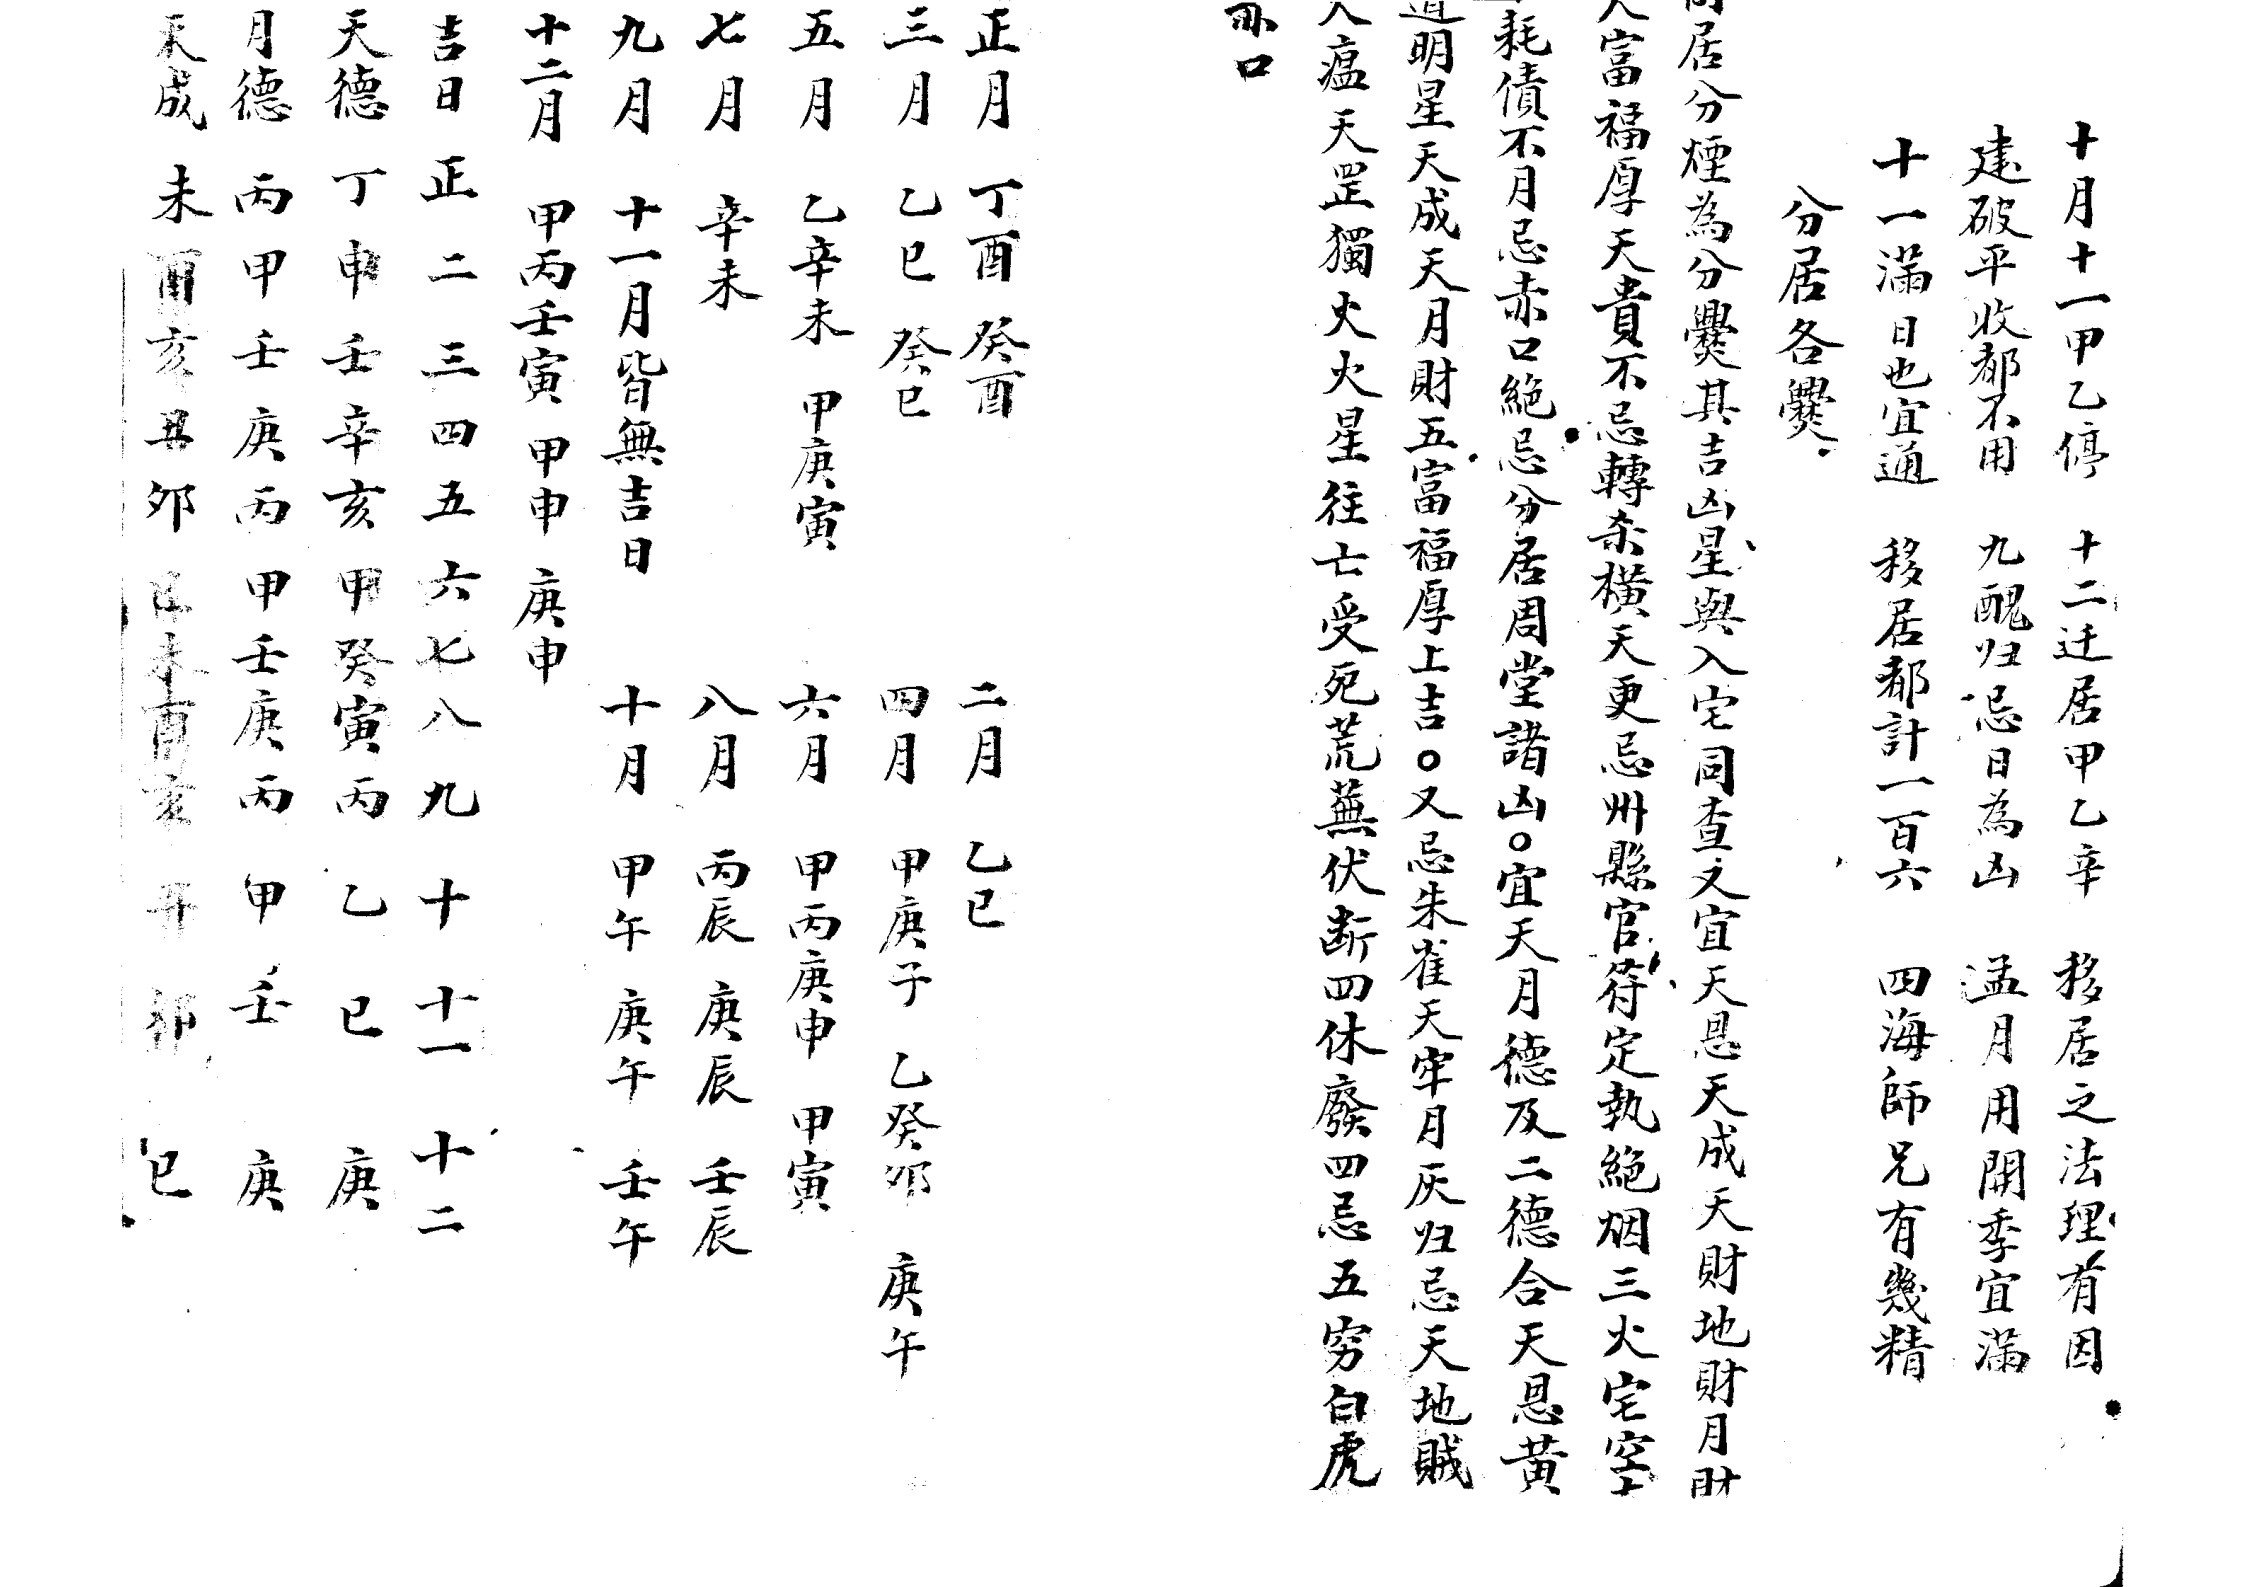 十月十一甲乙停　十二迁居甲乙辛　移居之法理有因
建破平收都不用　九醜归忌日為凶　孟月用開季宜滿
十一滿日也宜通　移居都計一百六　四海師兄有幾精
分居各爨
居分煙為分爨其吉凶星與入宅同查又宜天恩天成天財地財月財
大富福厚天貴不忌轉杀橫天更忌州縣官符定執絕烟三火宅空
耗債不月忌赤口絕忌分居周堂諸凶○宜天月德及二德合天恩黄
道明星天成天月財五富福厚上吉○又忌朱雀天牢月灰归忌天地賊
瘟天罡獨火火星往亡受死荒蕪伏断四休廢四忌五穷白虎
赤口
正月　丁酉　癸酉　二月　乙巳
三月　乙巳　癸巳　四月　甲庚子　乙癸卯　庚午
五月　乙辛未　甲庚寅　六月　甲丙庚申　甲寅
七月　辛未　八月　丙辰　庚辰　壬辰
九月　十一月皆無吉日　十月　甲午　庚午　壬午
十二月　甲丙壬寅　甲申　庚申
吉日　正　二　三　四　五　六　七　八　九　十　十一　十二
天德　丁　申　壬　辛　亥　甲　癸　寅　丙　乙　巳　庚
月德　丙　甲　壬　庚　丙　甲　壬　庚　丙　甲　壬　庚
天成　未　酉　亥　丑　卯　巳　未　酉　亥　丑　卯　巳